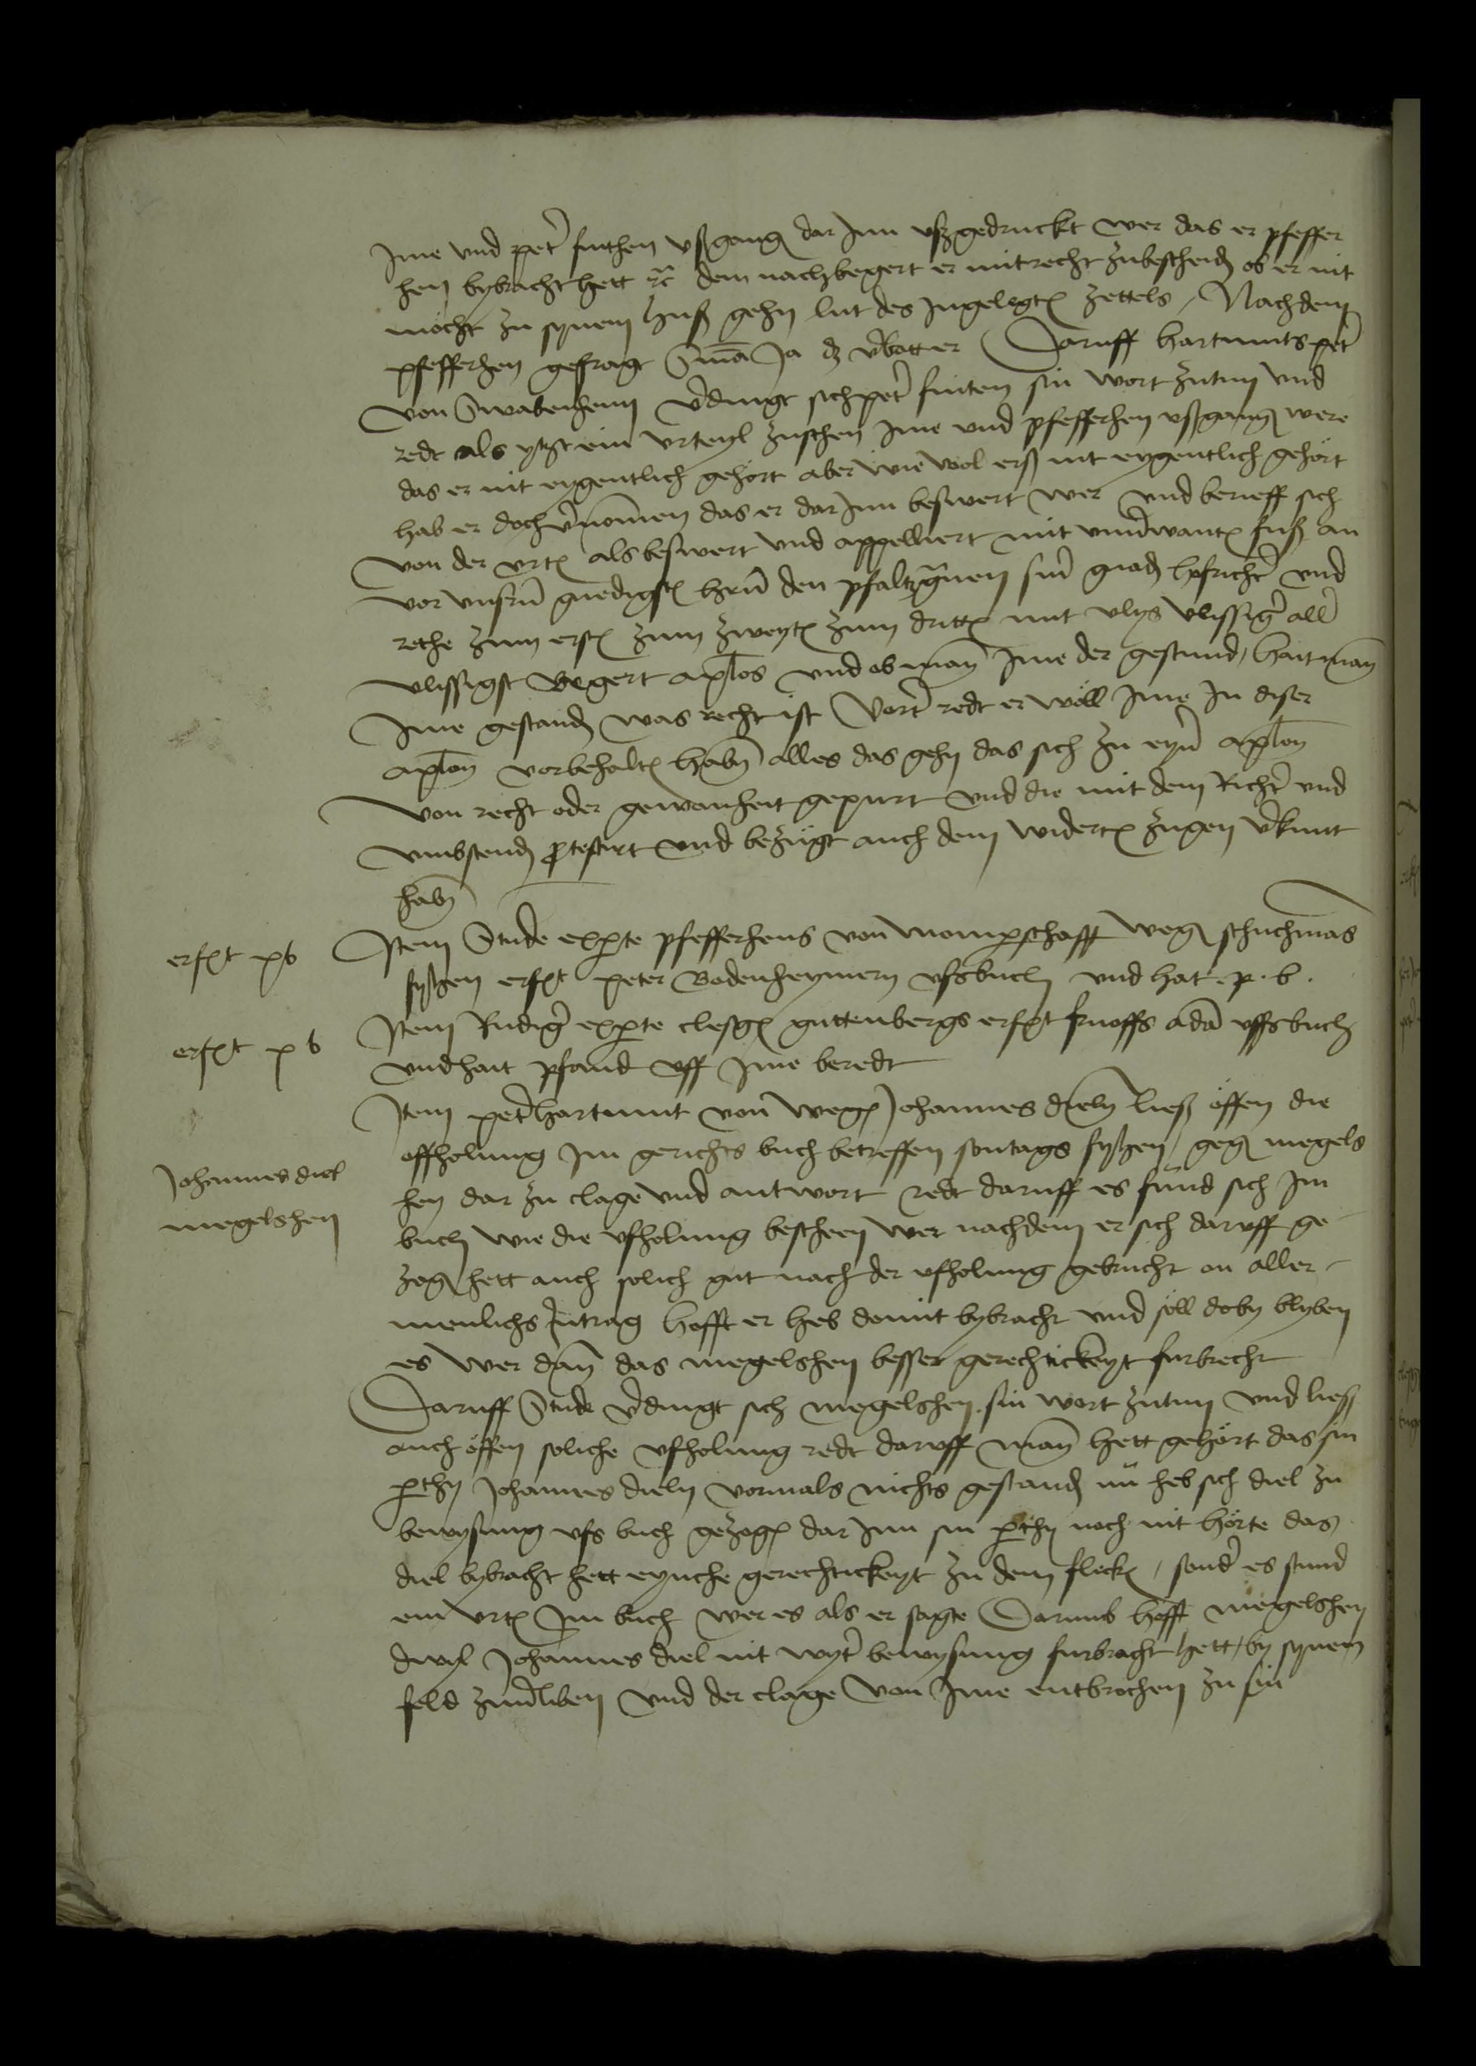 Ime und pet' finthen ußgangen dar Inn ußgedruckt wer das er pfeffer
hen bybracht hett etc dem nach begert er mit recht zubescheid ob er nit
mocht zu synem huß gehn lut des Ingelegten zettels / Nachdem
pfefferhen gefragt Ja dz v'bott er Daruff hartmuts pet'
von Swabenheim v'dingt sich pet' finten sin wort zutun und
redt als ytzt ein urteyl zuschen Ime und pfefferhen ußgangen were
das er nit eygentlich gehort aber wie wol erß nit eygentlich gehört
hab er doch v'nomen das er dar Inn beswert wer und berieff sich
von der urt als beswert und appelliert mit fuß an
vor unsern gnedigsten hern den pfaltzgraven sin' gnad hofricht' und
rethe zum ersten zum zweyten zum dritten mit vlys vlissig' all'
vlissigst begert apl'os und ob man Ime der gestund / hait man
Ime gestanden was recht ist Vort' redt er wöll Ime In diser
apl'on vorbehalten haben alles das gehn das sich zu eyn' apl'on
von recht oder gewonheit gepurt und die mit dem Richt' und
umbstend p'testirt und bezugt auch dem widerten zugen v'kunt
haben
erft xb
Item Stude exp'te pfefferhens von momparschafft wegen schuchmans
fyhen erft peter Bodenheymern ufsbuch und hat . p . b .
erft xb
Item Rudig' exp'te clesgen guttenbergs erft knoffs ada uffsbuch
und hait pfand uff Ime beredt
Johannes diel
megelshen
Item pet' hartmut von wegen Johannes dieln ließ öffen die
offholung Im gerichts buch betreffen sontags fyhen / gegen megels
hen dar zu clage und antwort redt daruff es fund sich Im
buch wie die ufholung bescheen wer nachdem er sich daruff ge
zogen hett auch solich gut nach der ufholung gebrucht on aller
menlichs Intrag hofft er heb domit bybracht und söll doby blyben
es wer dann das megelshen besser gerechtickeyt furbrecht
Daruff Stude v'dingt sich megelshen sin wort zutun und ließ
auch öffen soliche ufholung redt daruff man hett gehört das sin
p'thy Johannes dieln vormals nichts gestanden nu heb sich diel zu
bewysung ufs buch gezogen dar Inn sin p'thy noch nit hörte das
diel bybracht hett eyniche gerechtickeyt zu dem flecken / sond' es stund
ein urt Im buch wer es als er sagte Darumb hofft megelshen
dwyl Johannes diel nit wyt' bewysung furbracht hett / by synem
feld zuud'liben und der clage von Ime entbrochen zu sin